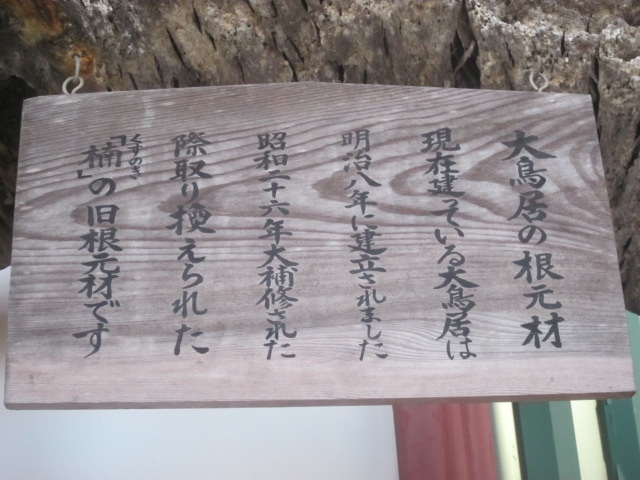 大鳥居の根元材
現在建っている大鳥居は
明治八年に建立されました
昭和二十六年大補修された
際取り換えられた
「楠」の旧根元材です
くすのき